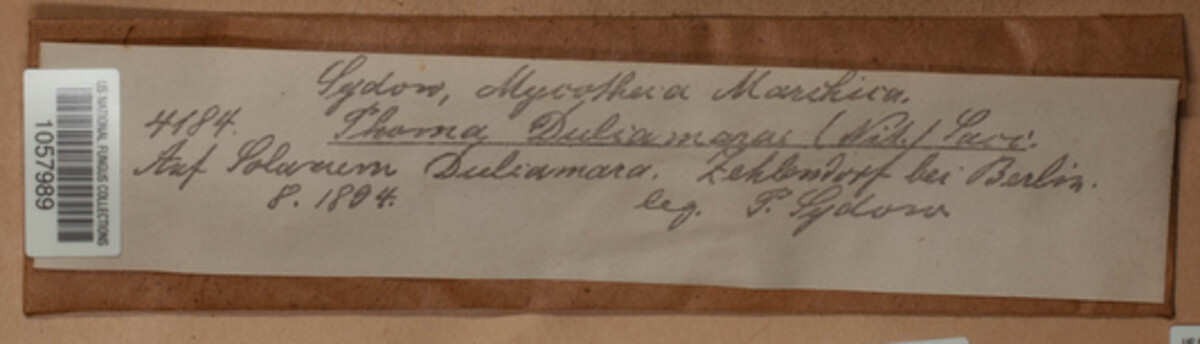 Sydow, Mycotheca Marchica.
4184. Phoma Dulcamarae (Nit.) Sacc.
Auf Solanum Dulcamara. Zehlendorf bei Berlin.
8. 1894. leg. P. Sydow
US NATIONAL FUNGUS COLLECTIONS
1057989